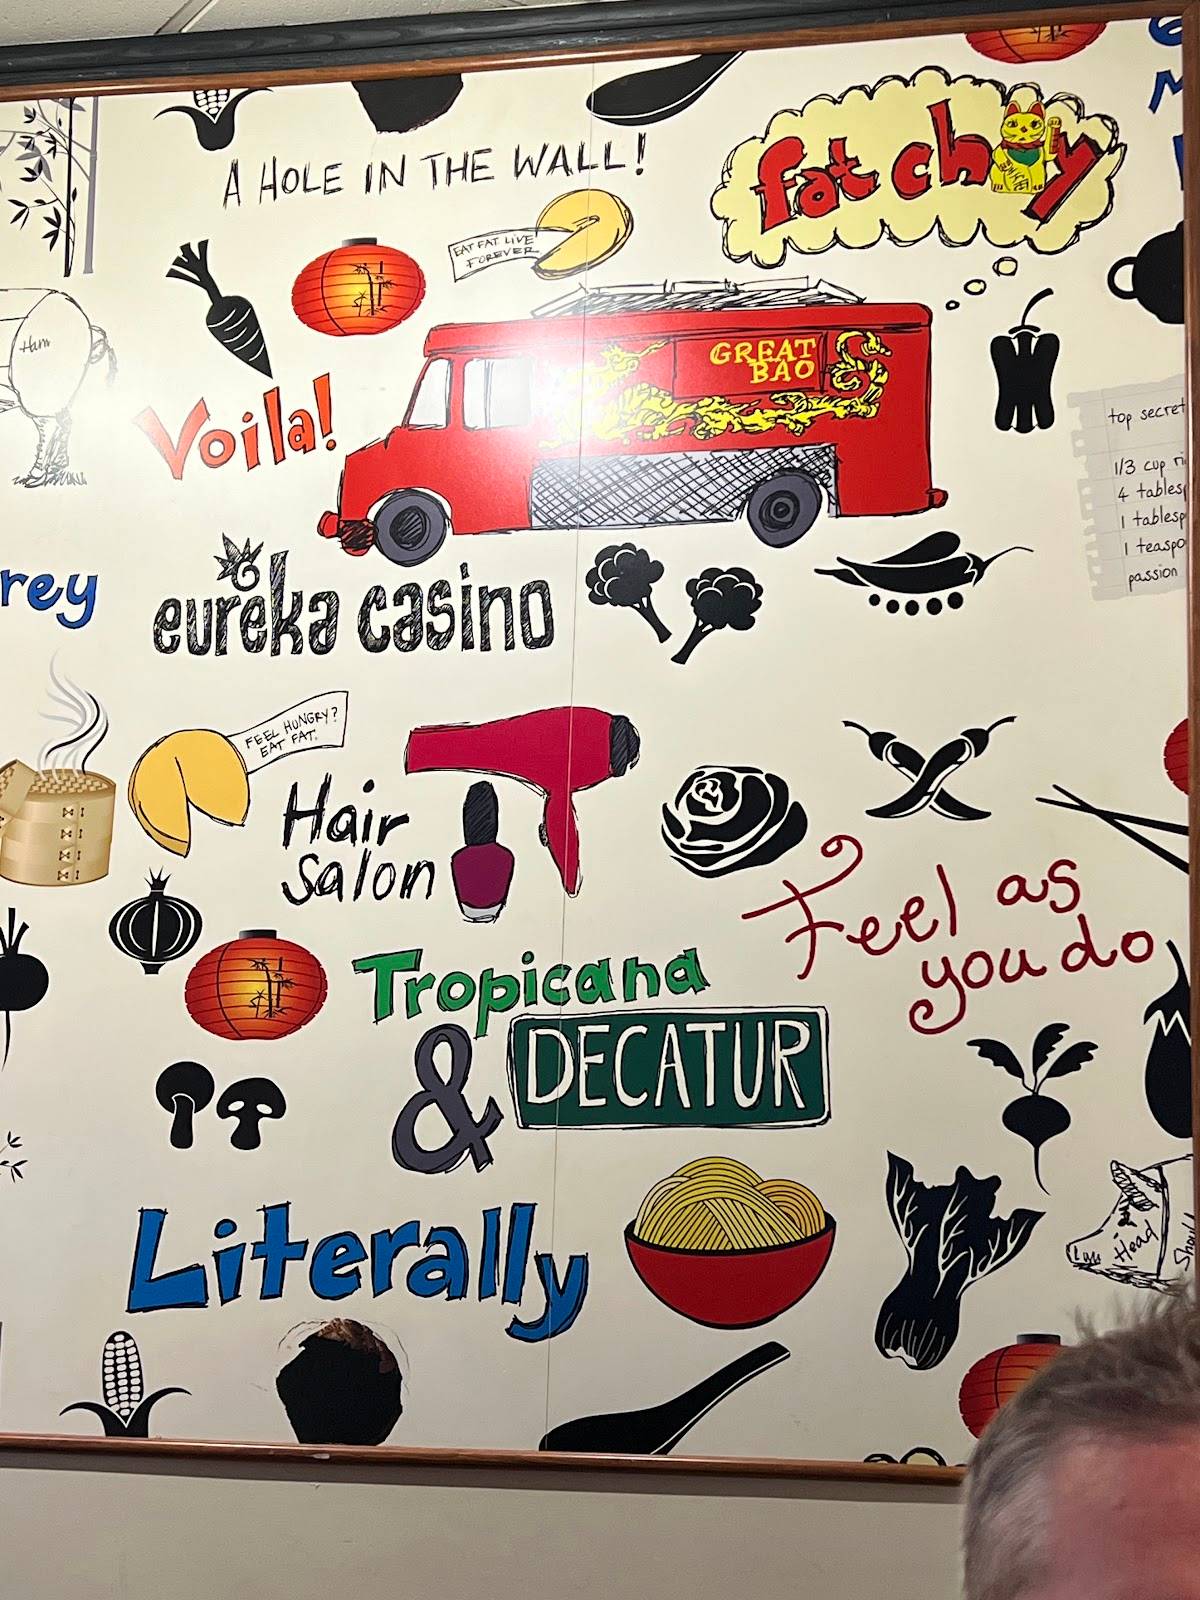 A HOLE IN THE WALL!
fat choy
EAT FAT. LIVE
FOREVER
GREAT
BAO
Ham
Voila!
top secret
1/3 cup
4 tables
1 tablesp
1 teaspo
passion
rey
eureka casino
FEEL HUNGRY?
EAT FAT.
Hair
Salon
Feel as
you do
Tropicana
& DECATUR
Literally
Head